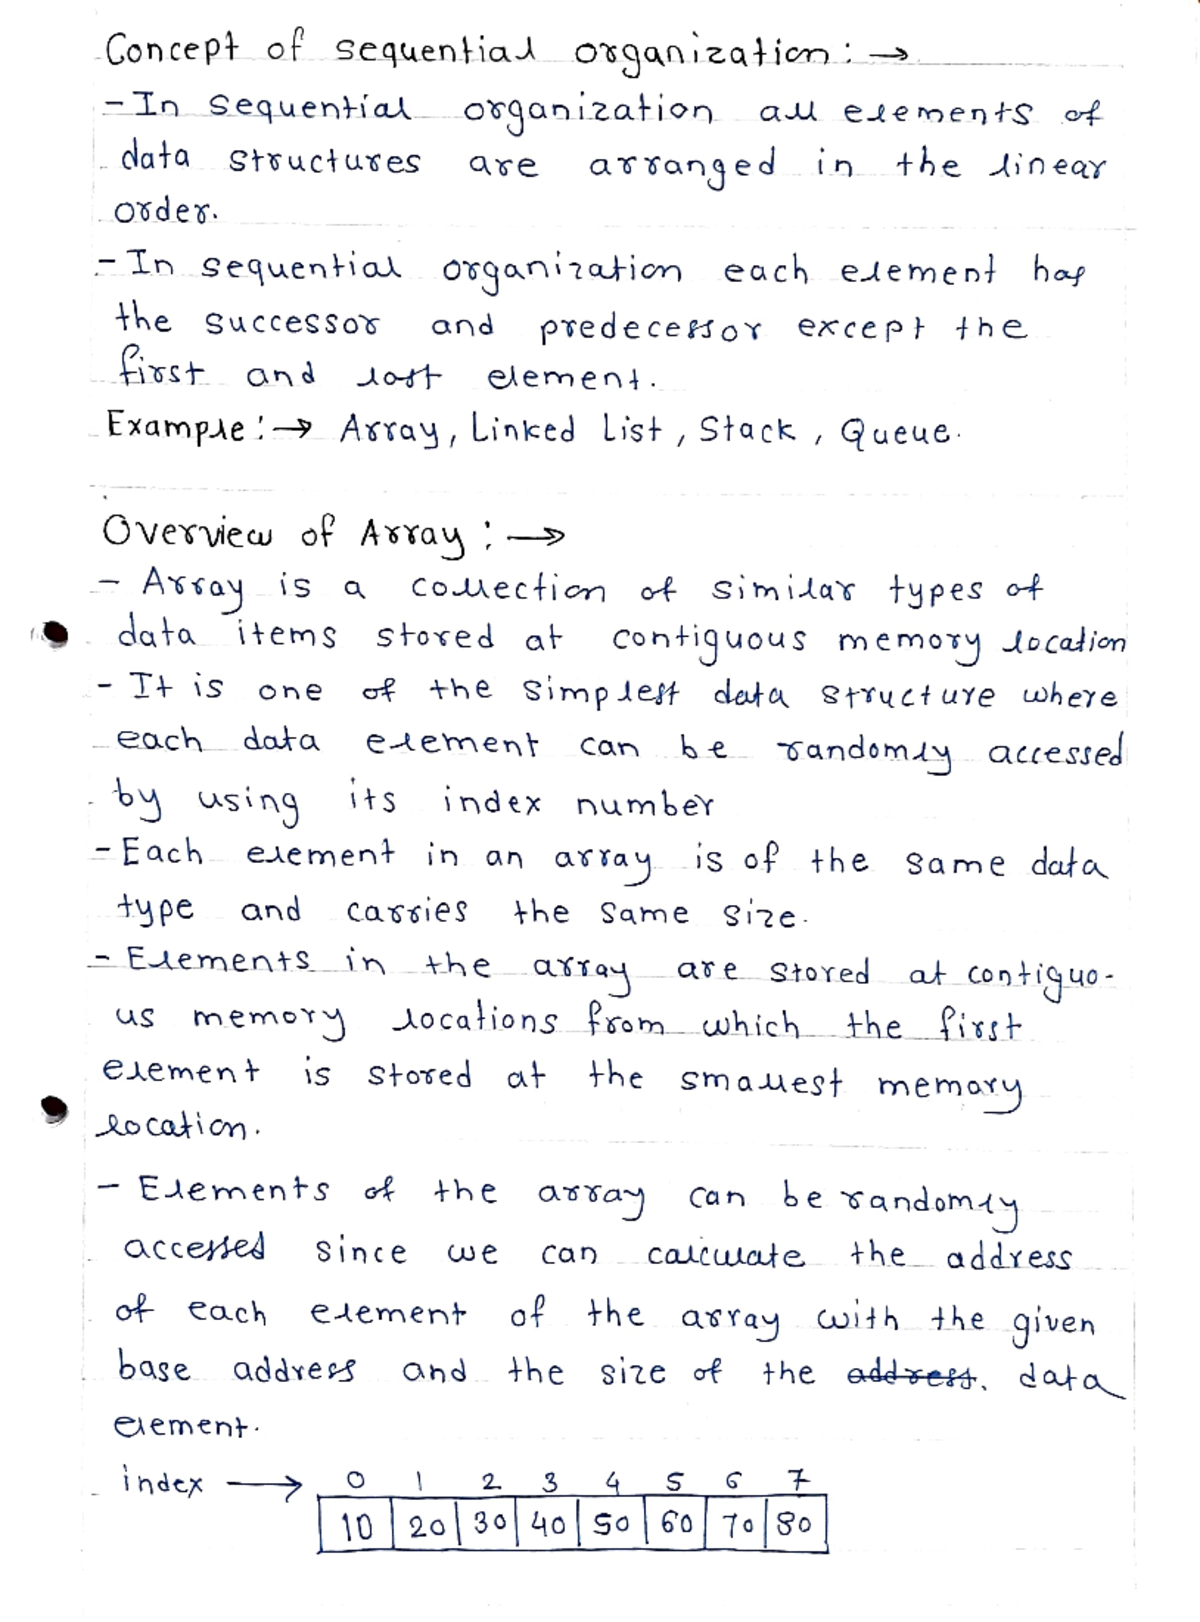 Concept of sequential organization: →
- In sequential organization all elements of
data structures are arranged in the linear
order.
- In sequential organization each element has
the successor and predecessor except the
first and last element.
Example: → Array, Linked List, Stack, Queue.
Overview of Array: →
- Array is a collection of similar types of
data items stored at contiguous memory location
- It is one of the simplest data structure where
each data element can be randomly accessed
by using its index number
- Each element in an array is of the same data
type and carries the same size.
- Elements in the array are stored at contiguo-
us memory locations from which the first
element is stored at the smallest memary
location.
- Elements of the array can be randomly
accessed since we can calculate the address
of each element of the array with the given
base address and the size of the address. data
element.
index → 0 1 2 3 4 5 6 7
10 20 30 40 50 60 70 80